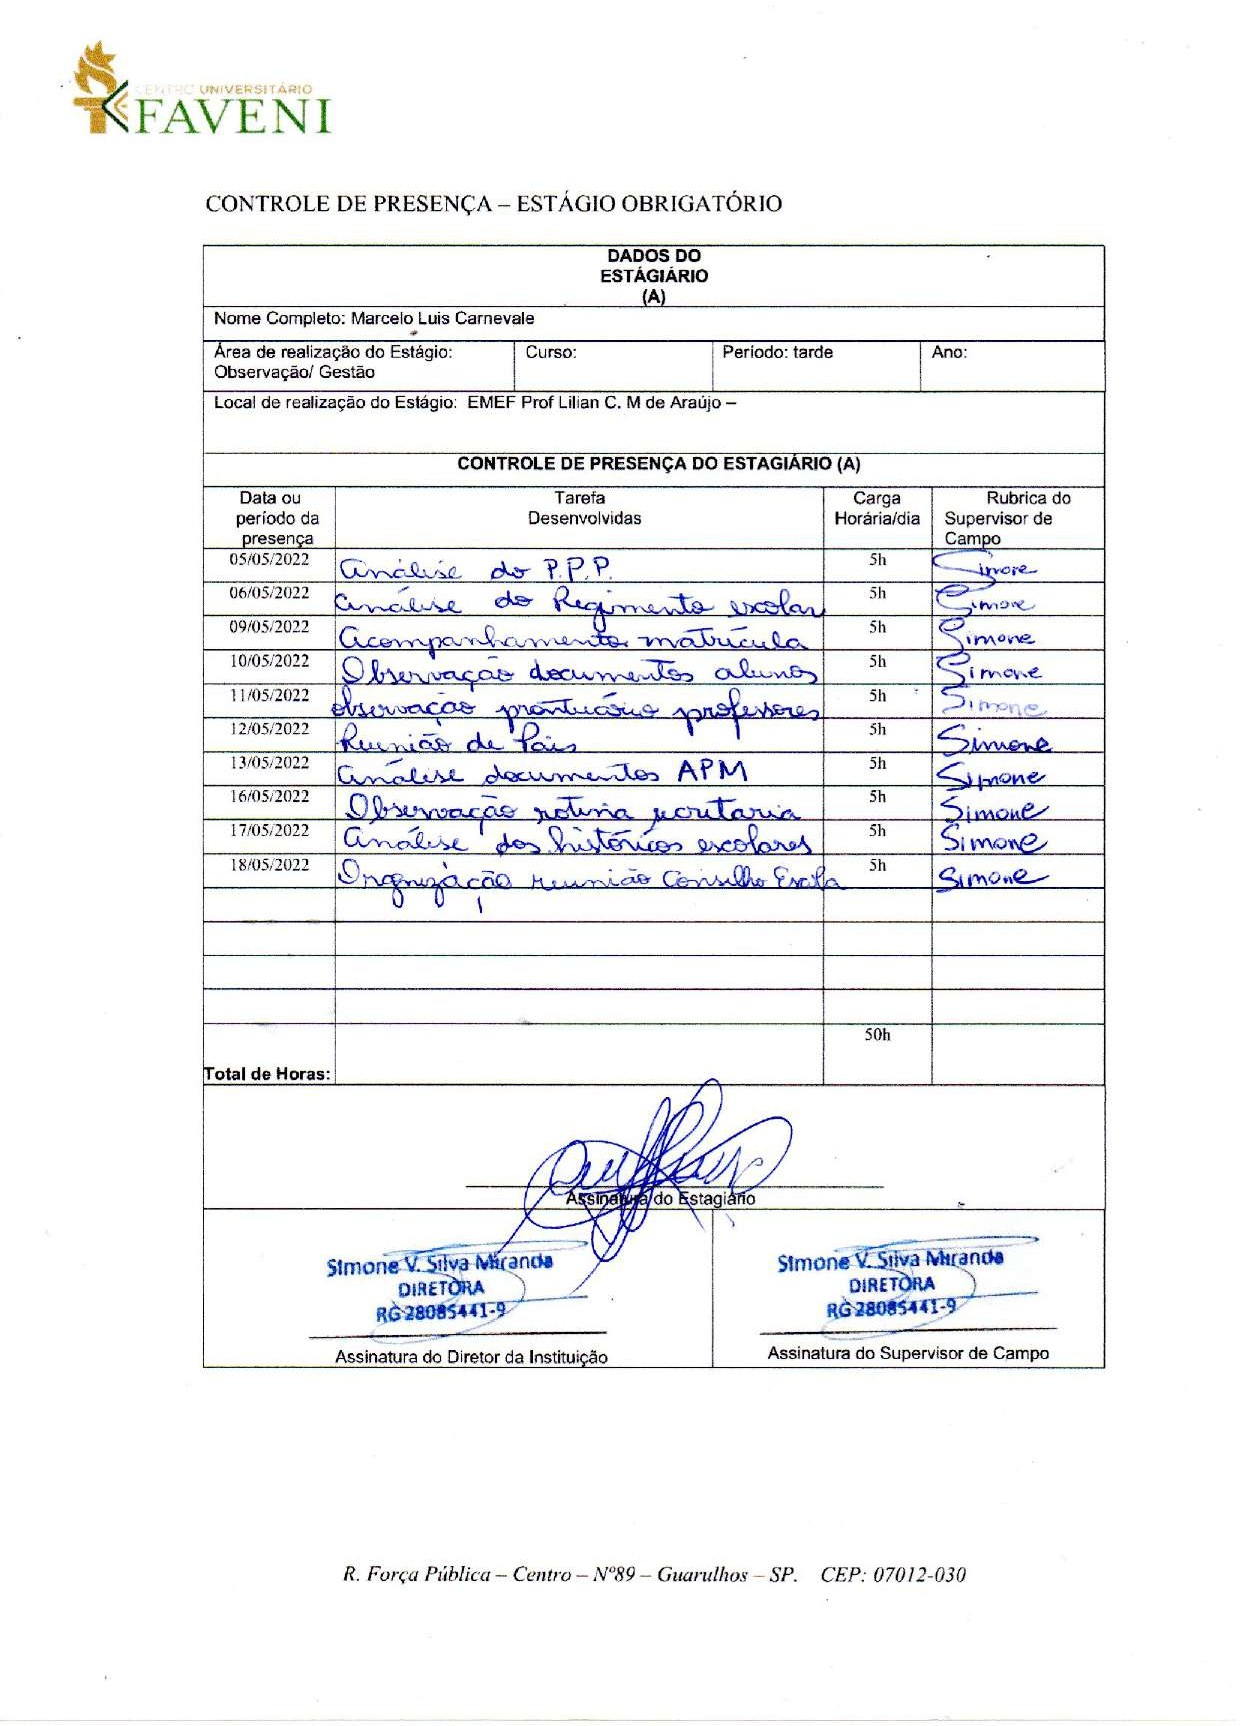 CENTRO UNIVERSITÁRIO
FAVENI
CONTROLE DE PRESENÇA – ESTÁGIO OBRIGATÓRIO
DADOS DO
ESTÁGIÁRIO
(A)
Nome Completo: Marcelo Luis Carnevale
Área de realização do Estágio: Curso: Período: tarde Ano:
Observação/ Gestão
Local de realização do Estágio: EMEF Prof Lilian C. M de Araújo –
CONTROLE DE PRESENÇA DO ESTAGIÁRIO (A)
Data ou Tarefa Carga Rubrica do
período da Desenvolvidas Horária/dia Supervisor de
presença Campo
05/05/2022 Análise do P.P.P. 5h Simone
06/05/2022 Análise do Regimento escolar 5h Simone
09/05/2022 Acompanhamento matrícula 5h Simone
10/05/2022 Observação documentos alunos 5h Simone
11/05/2022 observação prontuário professores 5h Simone
12/05/2022 Reunião de Pais 5h Simone
13/05/2022 Análise documentos APM 5h Simone
16/05/2022 Observação rotina secretaria 5h Simone
17/05/2022 Análise dos históricos escolares 5h Simone
18/05/2022 Organização reunião Conselho Escola 5h Simone
50h
Total de Horas:
Assinatura do Estagiário
Simone V. Silva Miranda Simone V. Silva Miranda
DIRETORA DIRETORA
RG 28085441-9 RG 28085441-9
Assinatura do Diretor da Instituição Assinatura do Supervisor de Campo
R. Força Pública – Centro – Nº89 – Guarulhos – SP. CEP: 07012-030